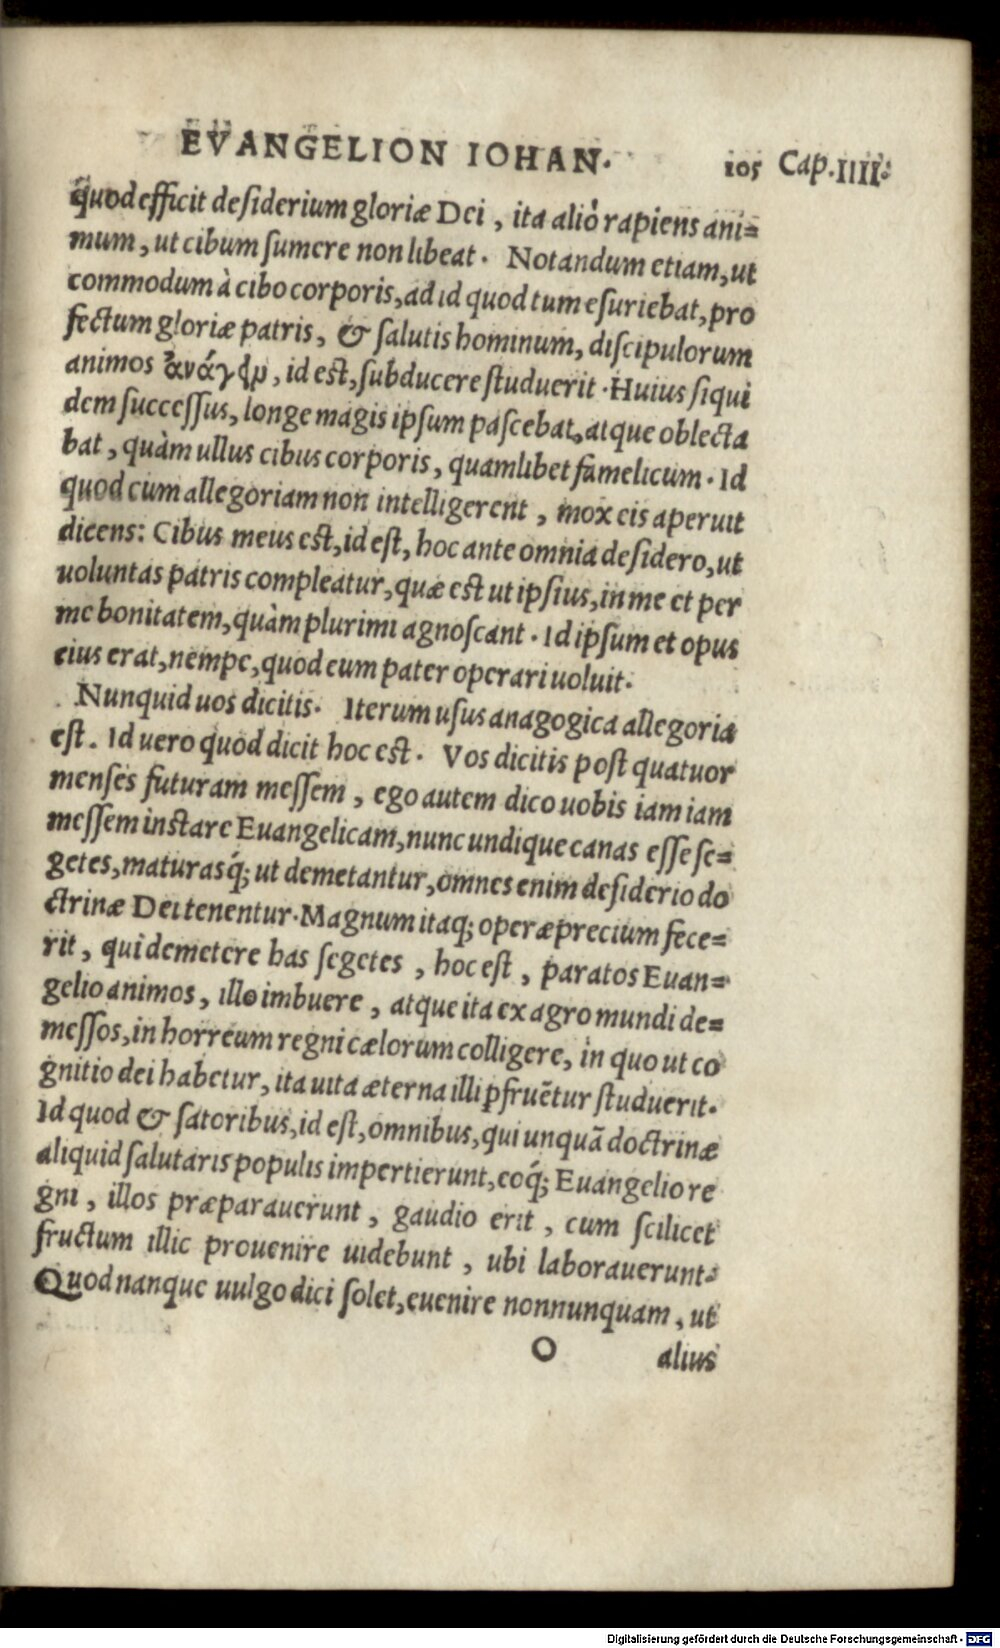 EVANGELION IOHAN. 105 Cap. IIII.
quod efficit desiderium gloriæ Dei, ita aliò rapiens ani=
mum, ut cibum sumere non libeat. Notandum etiam, ut
commodum à cibo corporis, ad id quod tum esuriebat, pro
fectum gloriæ patris, & salutis hominum, discipulorum
animos ἀνάγειν, id est, subducere studuerit. Huius siqui
dem successus, longe magis ipsum pascebat, atque oblecta
bat, quàm ullus cibus corporis, quamlibet famelicum. Id
quod cum allegoriam non intelligerent, mox eis aperuit
dicens: Cibus meus est, id est, hoc ante omnia desidero, ut
uoluntas patris compleatur, quæ est ut ipsius, in me et per
me bonitatem, quàm plurimi agnoscant. Id ipsum et opus
eius erat, nempe, quod eum pater operari uoluit.
Nunquid uos dicitis. Iterum usus anagogica allegoria
est. Id uero quod dicit hoc est. Vos dicitis post quatuor
menses futuram messem, ego autem dico uobis iam iam
messem instare Euangelicam, nunc undique canas esse se=
getes, maturasq́; ut demetantur, omnes enim desiderio do
ctrinæ Dei tenentur. Magnum itaq; operæprecium fece=
rit, qui demetere has segetes, hoc est, paratos Euan=
gelio animos, illo imbuere, atque ita ex agro mundi de=
messos, in horreum regni cælorum colligere, in quo ut co
gnitio dei habetur, ita uita æterna illi ꝑfruẽtur studuerit.
Id quod & satoribus, id est, omnibus, qui unquã doctrinæ
aliquid salutaris populis impertierunt, eoq́; Euangelio re
gni, illos præparauerunt, gaudio erit, cum scilicet
fructum illic prouenire uidebunt, ubi laborauerunt.
Quod nanque uulgo dici solet, euenire nonnunquam, ut
O alius
Digitalisierung gefördert durch die Deutsche Forschungsgemeinschaft - DFG